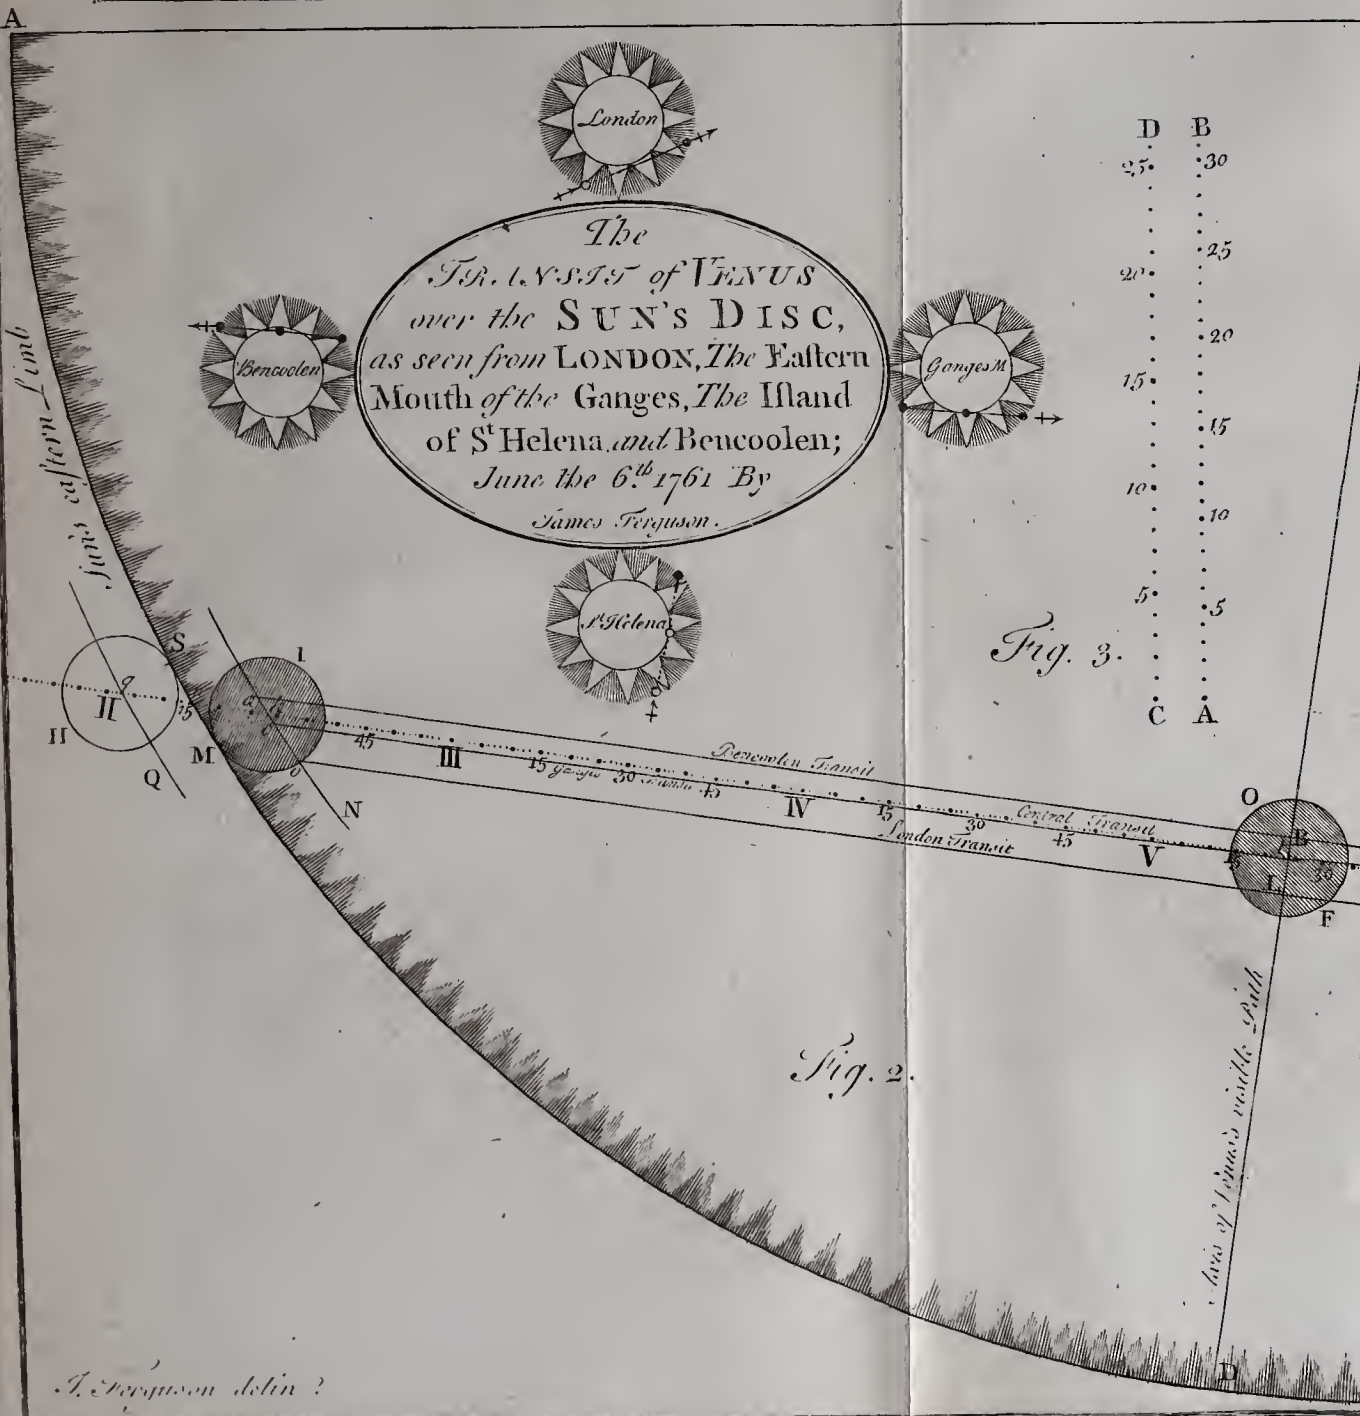 A
London
The
TRANSIT of VENUS
over the SUN'S DISC,
as seen from LONDON, The Eaſtern
Mouth of the Ganges, The Iſland
of St Helena, and Bencoolen;
June the 6th. 1761 By
James Ferguson.
Bencoolen
Ganges M
St. Helena
D B
25 30
25
20
20
15
15
10
10
5
5
C A
Fig. 3.
Sun's eaſtern Limb
S
I
H
II
q
15
M
Q
N
45
III
15
Ganges
30
Transit
45
IV
15
30
45
V
15
30
Bencoolen Transit
Central Transit
London Transit
O
B
L
F
Fig. 2.
Axis of Venus's visible Path
D
J. Ferguson delin.